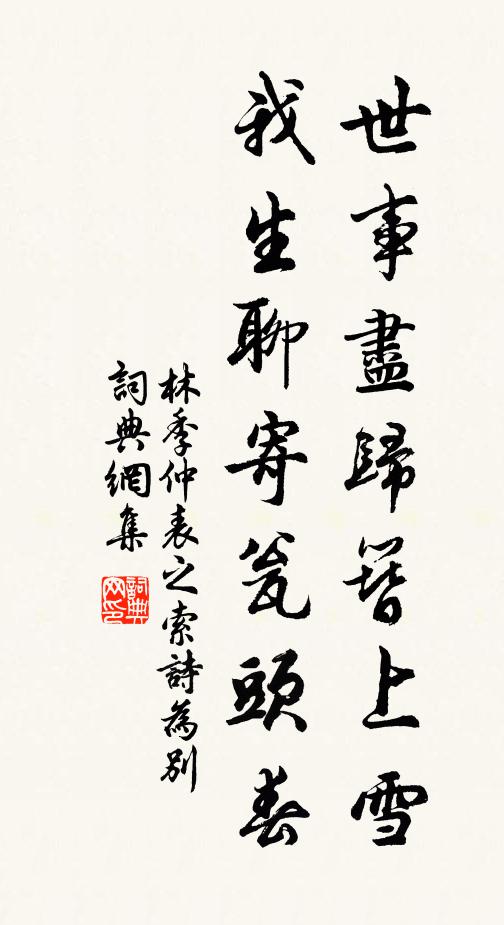 世事盡歸簪上雪
我生聊寄瓮頭春
林季仲表之索詩為別
詞典網集
詞典網印